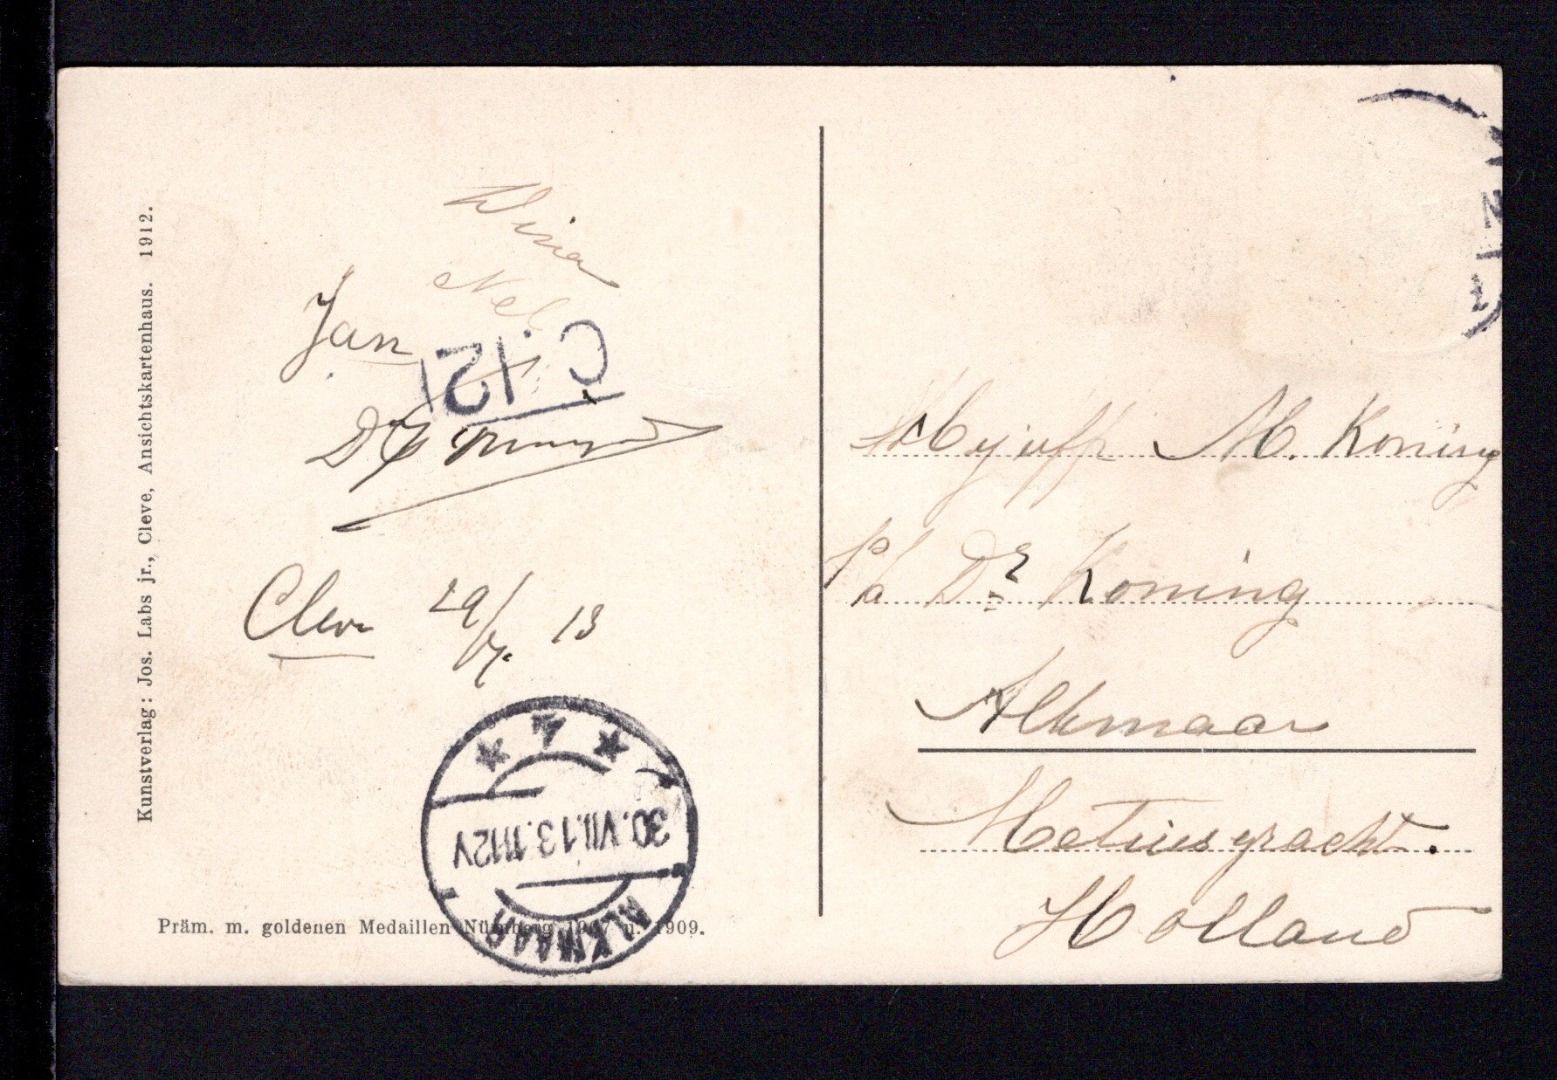 Kunstverlag: Jos. Labs jr., Cleve, Ansichtskartenhaus. 1912.
Wina
Nel
Jan
C.12
Cleve 29/7. 13
* 4 *
30.VII.13.11-12V
ALKMAAR
Präm. m. goldenen Medaillen Nürnberg 1907 u. 1909.
Mejuffr M. Koning
p/a Dr Koning
Alkmaar
Metiusgracht.
Holland